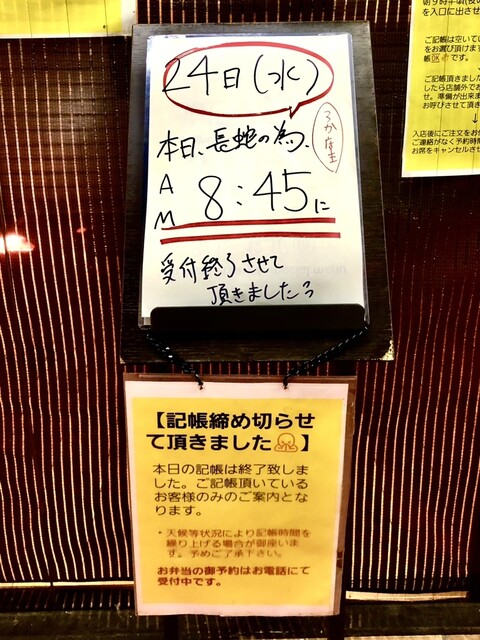 24日(水)
本日、長蛇の為、
AM 8:45に
受付終了させて
頂きました
【記帳締め切らせ
て頂きました】
本日の記帳は終了致しま
した。ご記帳頂いている
お客様のみのご案内とな
ります。
・天候等状況により記帳時間を
繰り上げる場合が御座いま
す。予めご了承下さい。
お弁当の御予約はお電話にて
受付中です。
を入口に出させ
ご記帳は空いてい
をお選び頂けます
ご記帳頂きました
したら店舗外でお
せ。準備が出来ま
お呼びさせて頂き
↓
入店後にご注文をお
ご連絡がなく予約時間
お席をキャンセルさせ